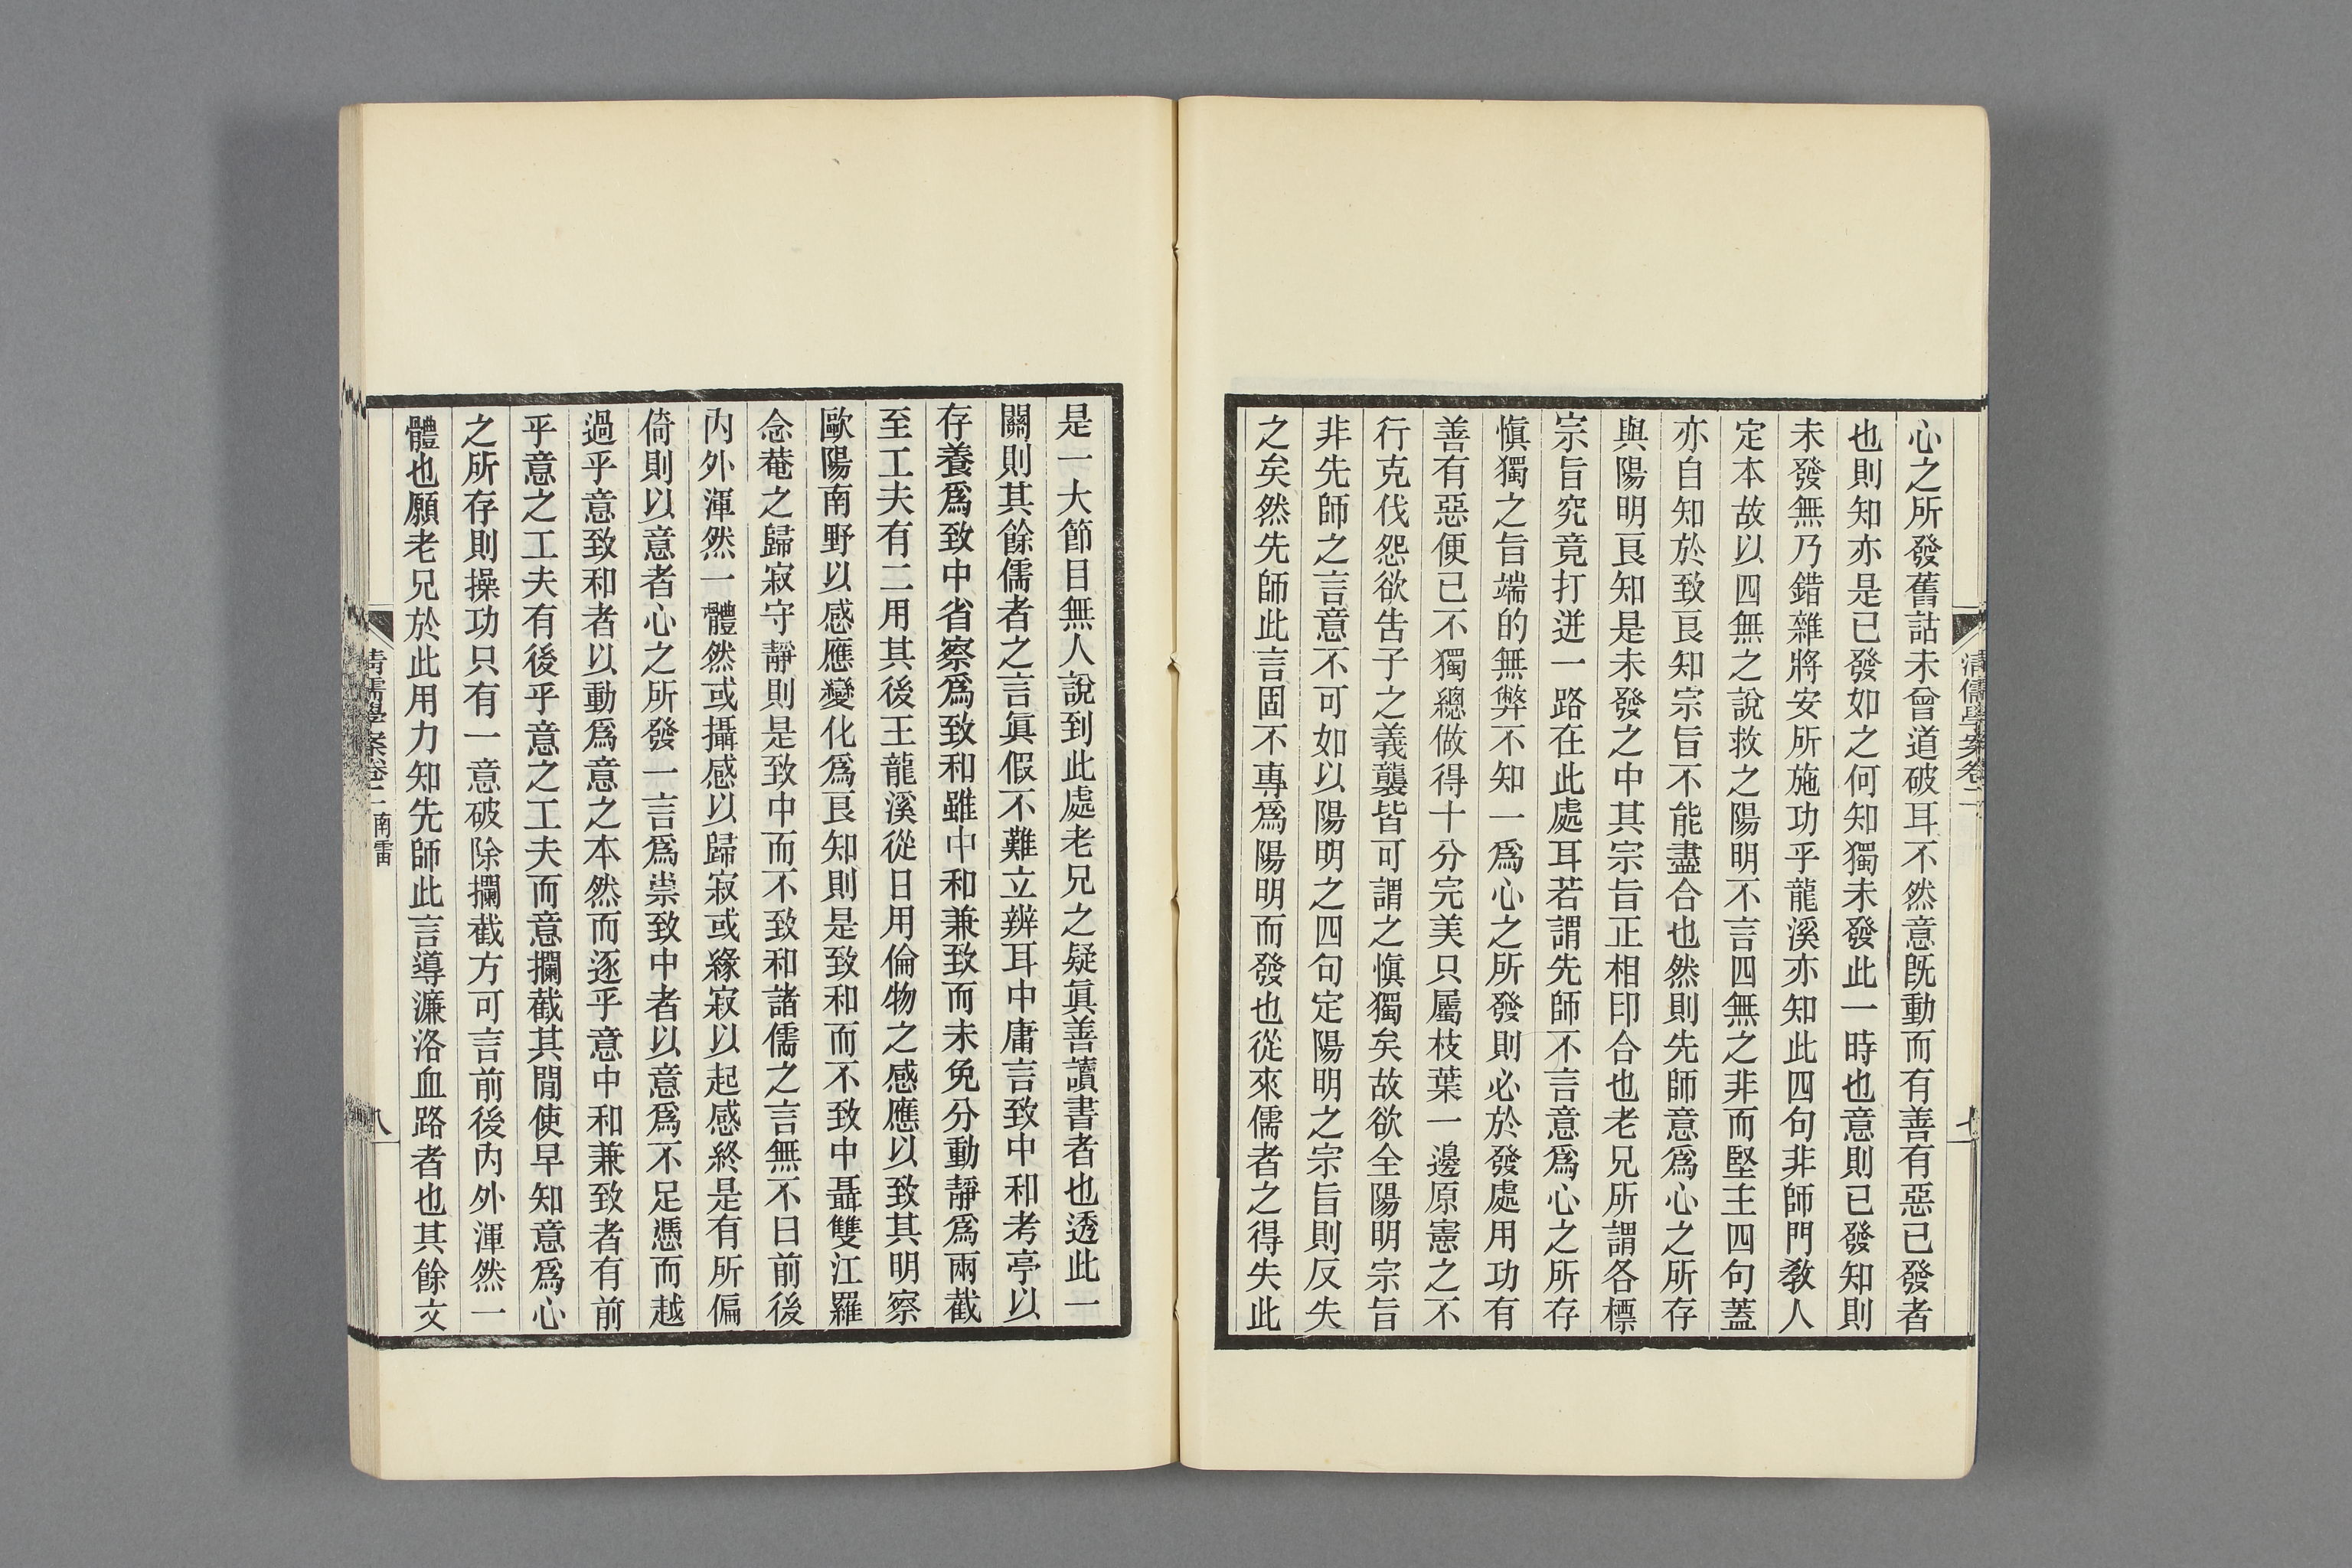 清儒學案卷二
七
心之所發舊詁未曾道破耳不然意旣動而有善有惡已發者
也則知亦是已發如之何知獨未發此一時也意則已發知則
未發無乃錯雜將安所施功乎龍溪亦知此四句非師門敎人
定本故以四無之說救之陽明不言四無之非而堅主四句蓋
亦自知於致良知宗旨不能盡合也然則先師意爲心之所存
與陽明良知是未發之中其宗旨正相印合也老兄所謂各標
宗旨究竟打迸一路在此處耳若謂先師不言意爲心之所存
愼獨之旨端的無弊不知一爲心之所發則必於發處用功有
善有惡便已不獨總做得十分完美只屬枝葉一邊原憲之不
行克伐怨欲告子之義襲皆可謂之愼獨矣故欲全陽明宗旨
非先師之言意不可如以陽明之四句定陽明之宗旨則反失
之矣然先師此言固不專爲陽明而發也從來儒者之得失此
是一大節目無人說到此處老兄之疑眞善讀書者也透此一
關則其餘儒者之言眞假不難立辨耳中庸言致中和考亭以
存養爲致中省察爲致和雖中和兼致而未免分動靜爲兩截
至工夫有二用其後王龍溪從日用倫物之感應以致其明察
歐陽南野以感應變化爲良知則是致和而不致中聶雙江羅
念菴之歸寂守靜則是致中而不致和諸儒之言無不曰前後
內外渾然一體然或攝感以歸寂或緣寂以起感終是有所偏
倚則以意者心之所發一言爲祟致中者以意爲不足憑而越
過乎意致和者以動爲意之本然而逐乎意中和兼致者有前
乎意之工夫有後乎意之工夫而意攔截其閒使早知意爲心
之所存則操功只有一意破除攔截方可言前後內外渾然一
體也願老兄於此用力知先師此言導濂洛血路者也其餘文
清儒學案卷二 南雷
八